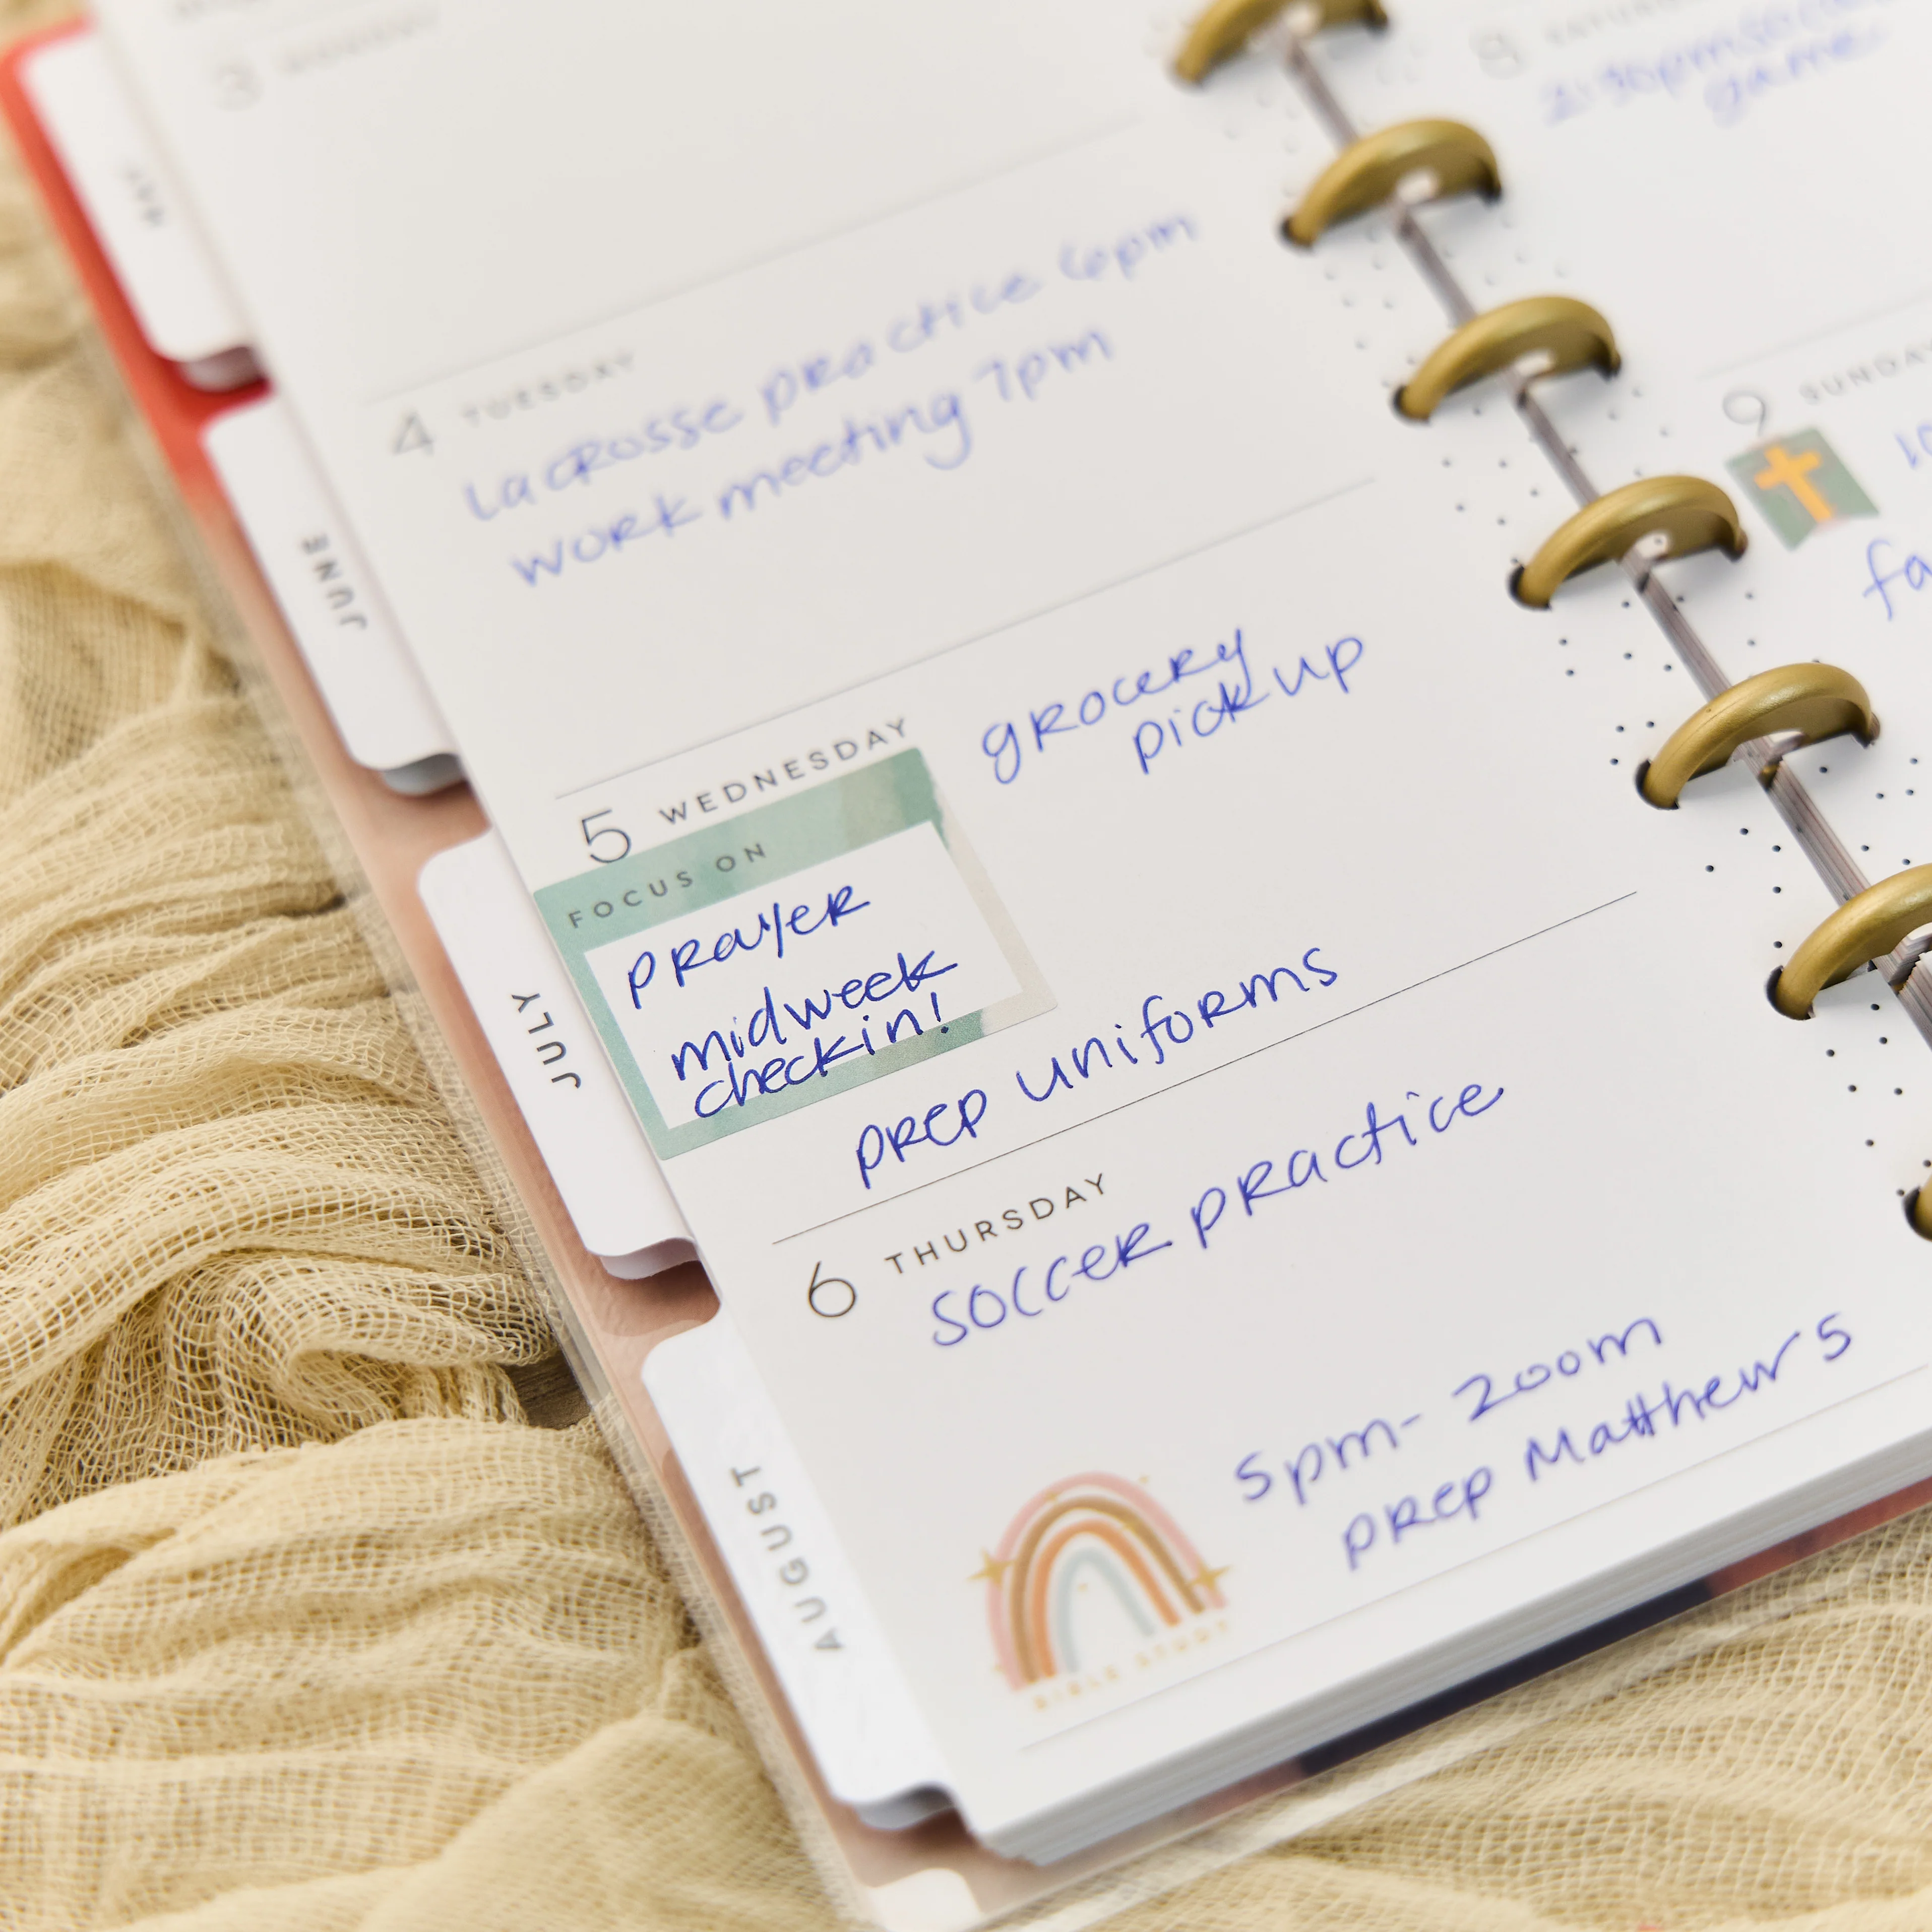 3 MONDAY
4 TUESDAY
lacrosse practice 6pm
work meeting 7pm
5 WEDNESDAY
grocery
pick up
FOCUS ON
prayer
midweek
checkin!
prep uniforms
6 THURSDAY
soccer practice
5pm- zoom
prep Matthew 5
BIBLE STUDY
MAY
JUNE
JULY
AUGUST
8 SATURDAY
2:30pm soccer
game
9 SUNDAY